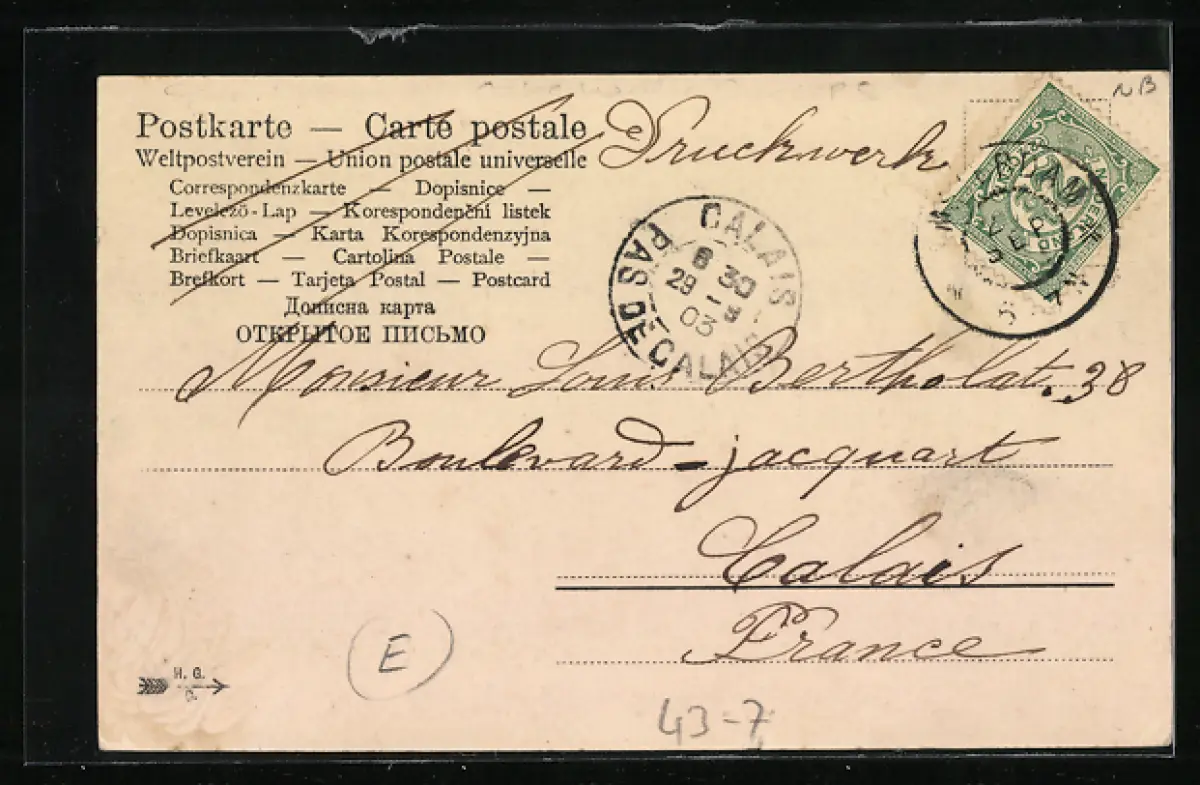 Postkarte — Carte postale
Druckwerk
NB
Weltpostverein — Union postale universelle
Correspondenzkarte — Dopisnice —
Levelező-Lap — Korespondenční listek
Dopisnica — Karta Korespondenzyjna
Briefkaart — Cartolina Postale —
Brefkort — Tarjeta Postal — Postcard
Дописна карта
ОТКРЫТОЕ ПИСЬМО
CALAIS
PAS DE CALAIS
8 30
29 - 1
03
Monsieur Louis Bertholat. 38
Boulevard - jacquart
Calais
France
H. G.
E
43-7